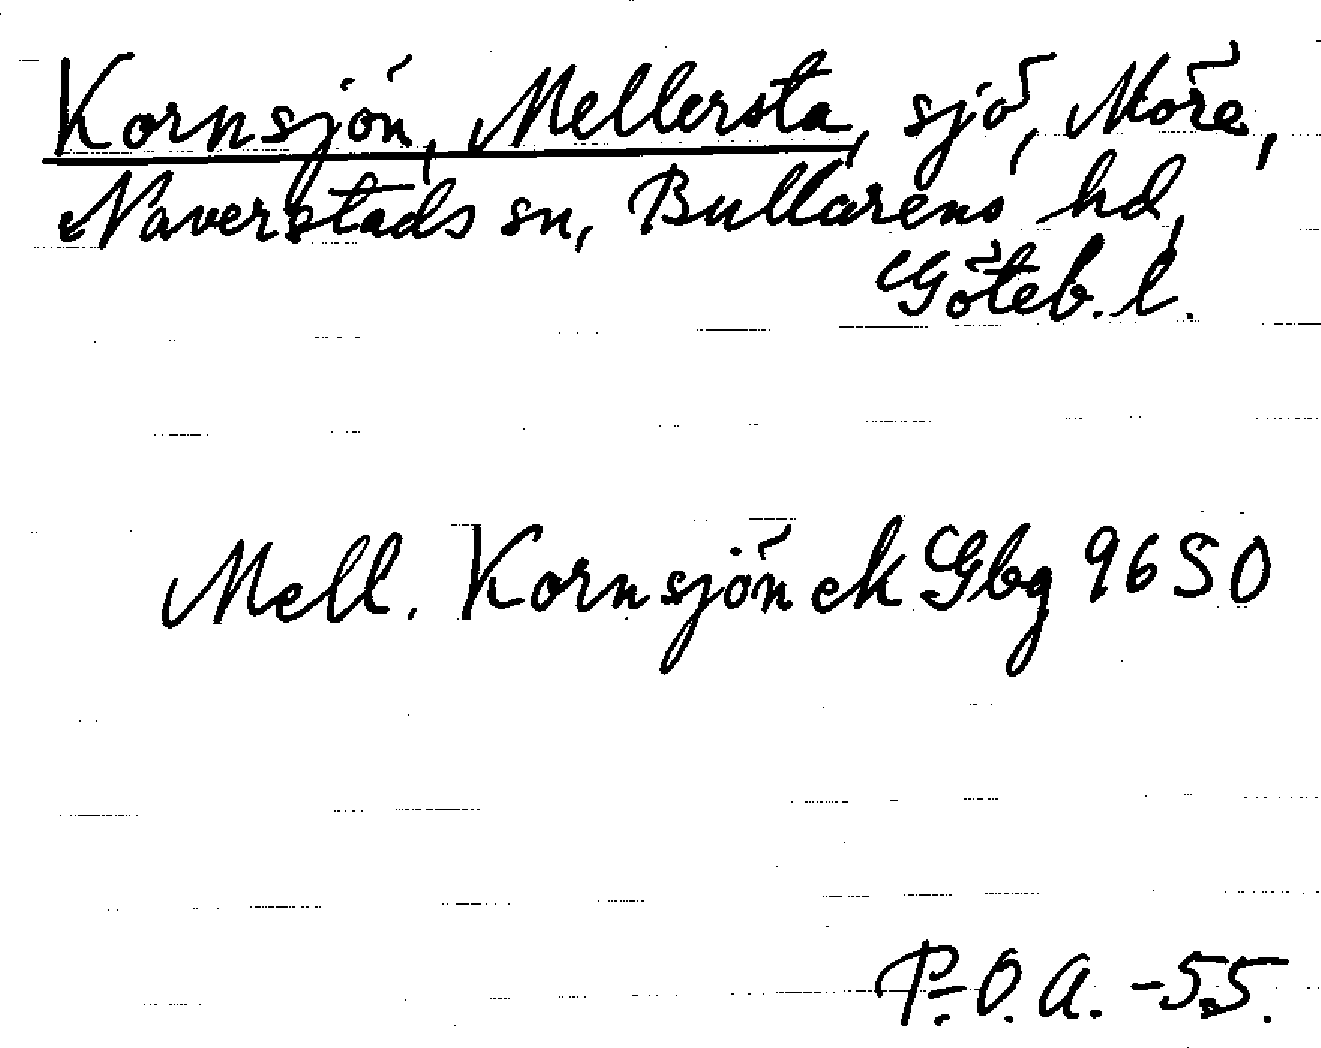 Kornsjön, Mellersta, sjö, Möre,
Naverstads sn, Bullarens hd,
Göteb. l.
Mell. Kornsjön ek Gbg 9650
P.-O. A. -55.